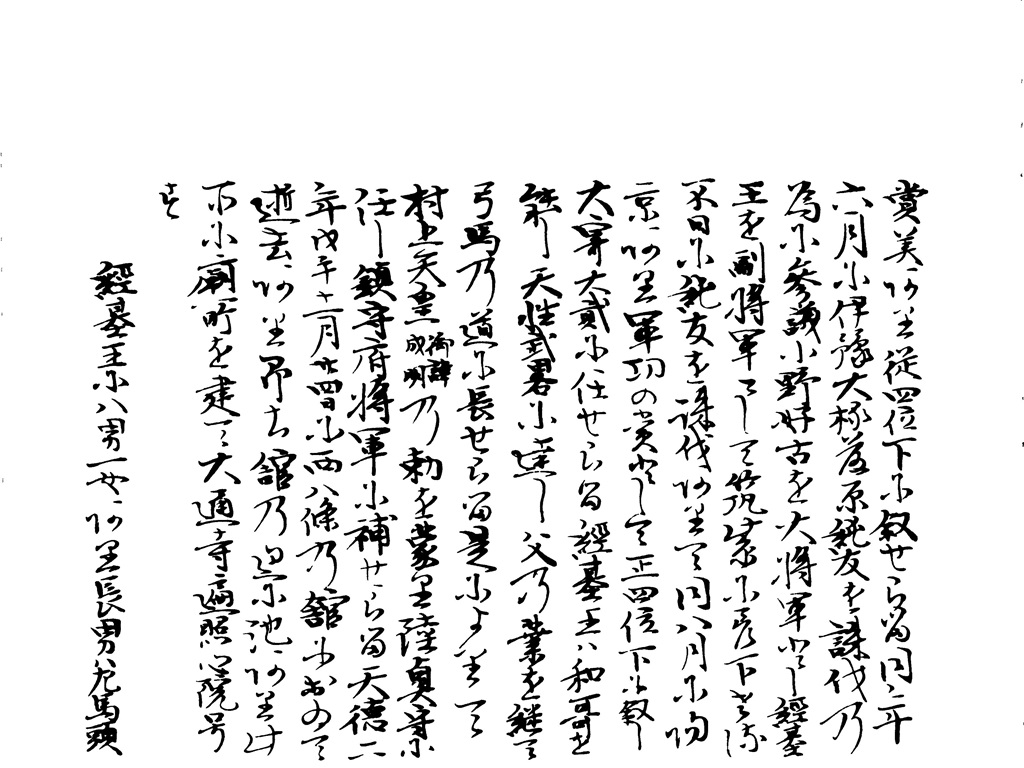 賞美ありて従四位下に叙せらる同三年
六月に伊豫大椽藤原純友を誅伐乃
為に参議小野好古を大将軍として経基
王を副将軍として筑紫に差下さる
不日に純友を誅伐ありて同八月に帰
京あり軍功の賞として正四位下に叙し
大宰大貳に任せらる経基王ハ和哥を
能し天性武畧に達し父乃業を継て
弓馬乃道に長せらる是によりて
村上天皇御諱成明乃勅を蒙り陸奥守に
任し鎮守府将軍に補せらる天徳二
年戊午十一月廿四日に西八條乃舘におゐて
逝去あり即ち舘乃に池あり此
所に廟町を建て大通寺遍照心院号
す
経基王に八男一女あり長男左馬頭